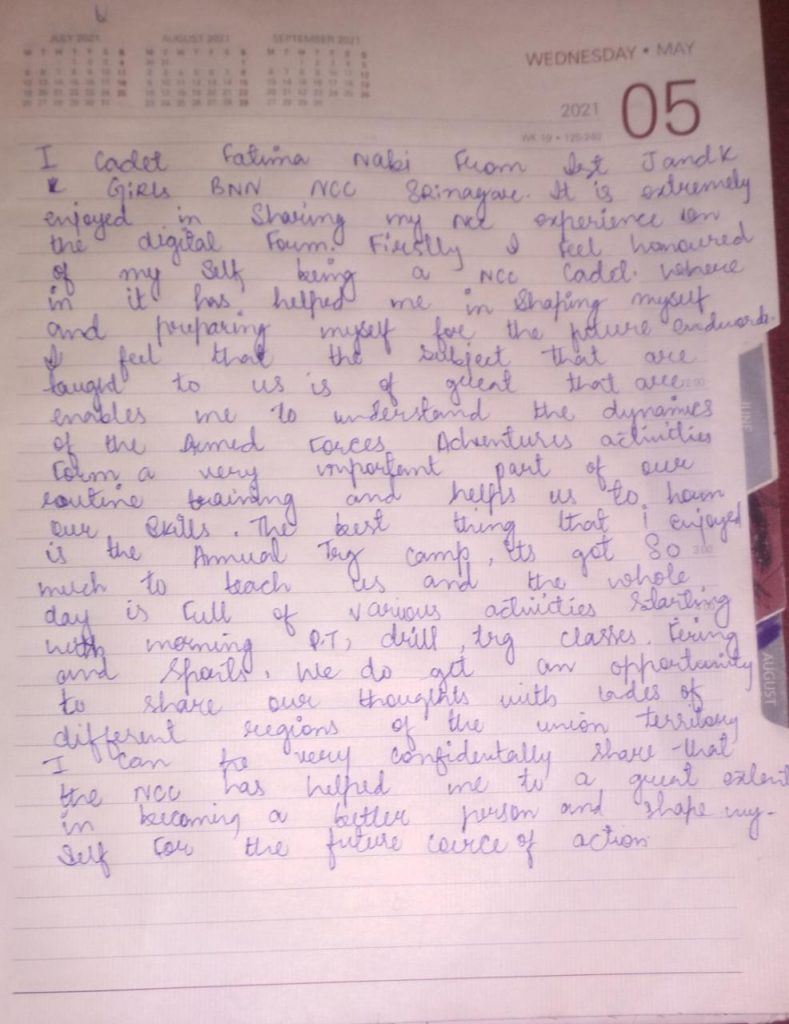 JULY 2021 AUGUST 2021 SEPTEMBER 2021
WEDNESDAY • MAY
2021 05
WK 19 • 125-240
I Cadet Fatima Nabi From Ist JandK
GIRLS BNN NCC Srinagar. It is extremely
enjoyed in Sharing my ncc experience on
the digital Foum. Firstly I feel honoured
of my Self being a NCC Cadet. where
in it has helped me in Shaping myself
and preparing myself for the future
I feel that the subject that are
taught to us is of great that are
enables me to understand the dynamics
of the Armed Forces Adventures activities
Form a very important part of our
routine training and helps us to
our Skills. The best thing that i enjoyed
is the Annual Trg camp, its got So
much to teach us and the whole
day is Full of various activities starting
with morning P.T, drill, trg classes. Fering
and Sports. We do get an opportunity
to share our thoughts with of
different regions of the union territory
I can be very confidentally share that
the NCC has helped me to a great extent
in becoming a better person and shape my-
Self For the future cource of action
JUNE
AUGUST